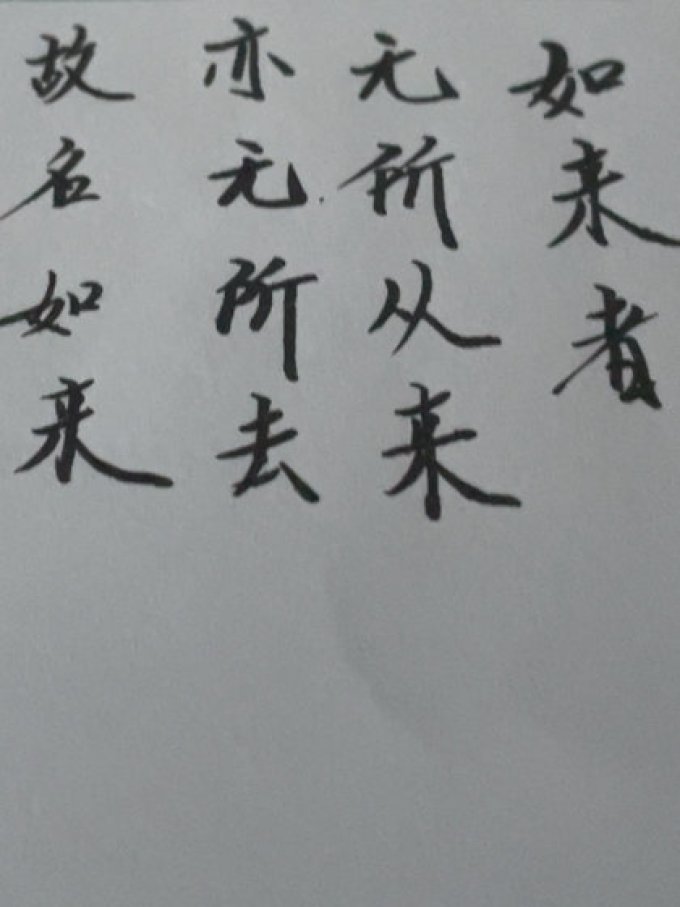 如来者
无所从来
亦无所去
故名如来